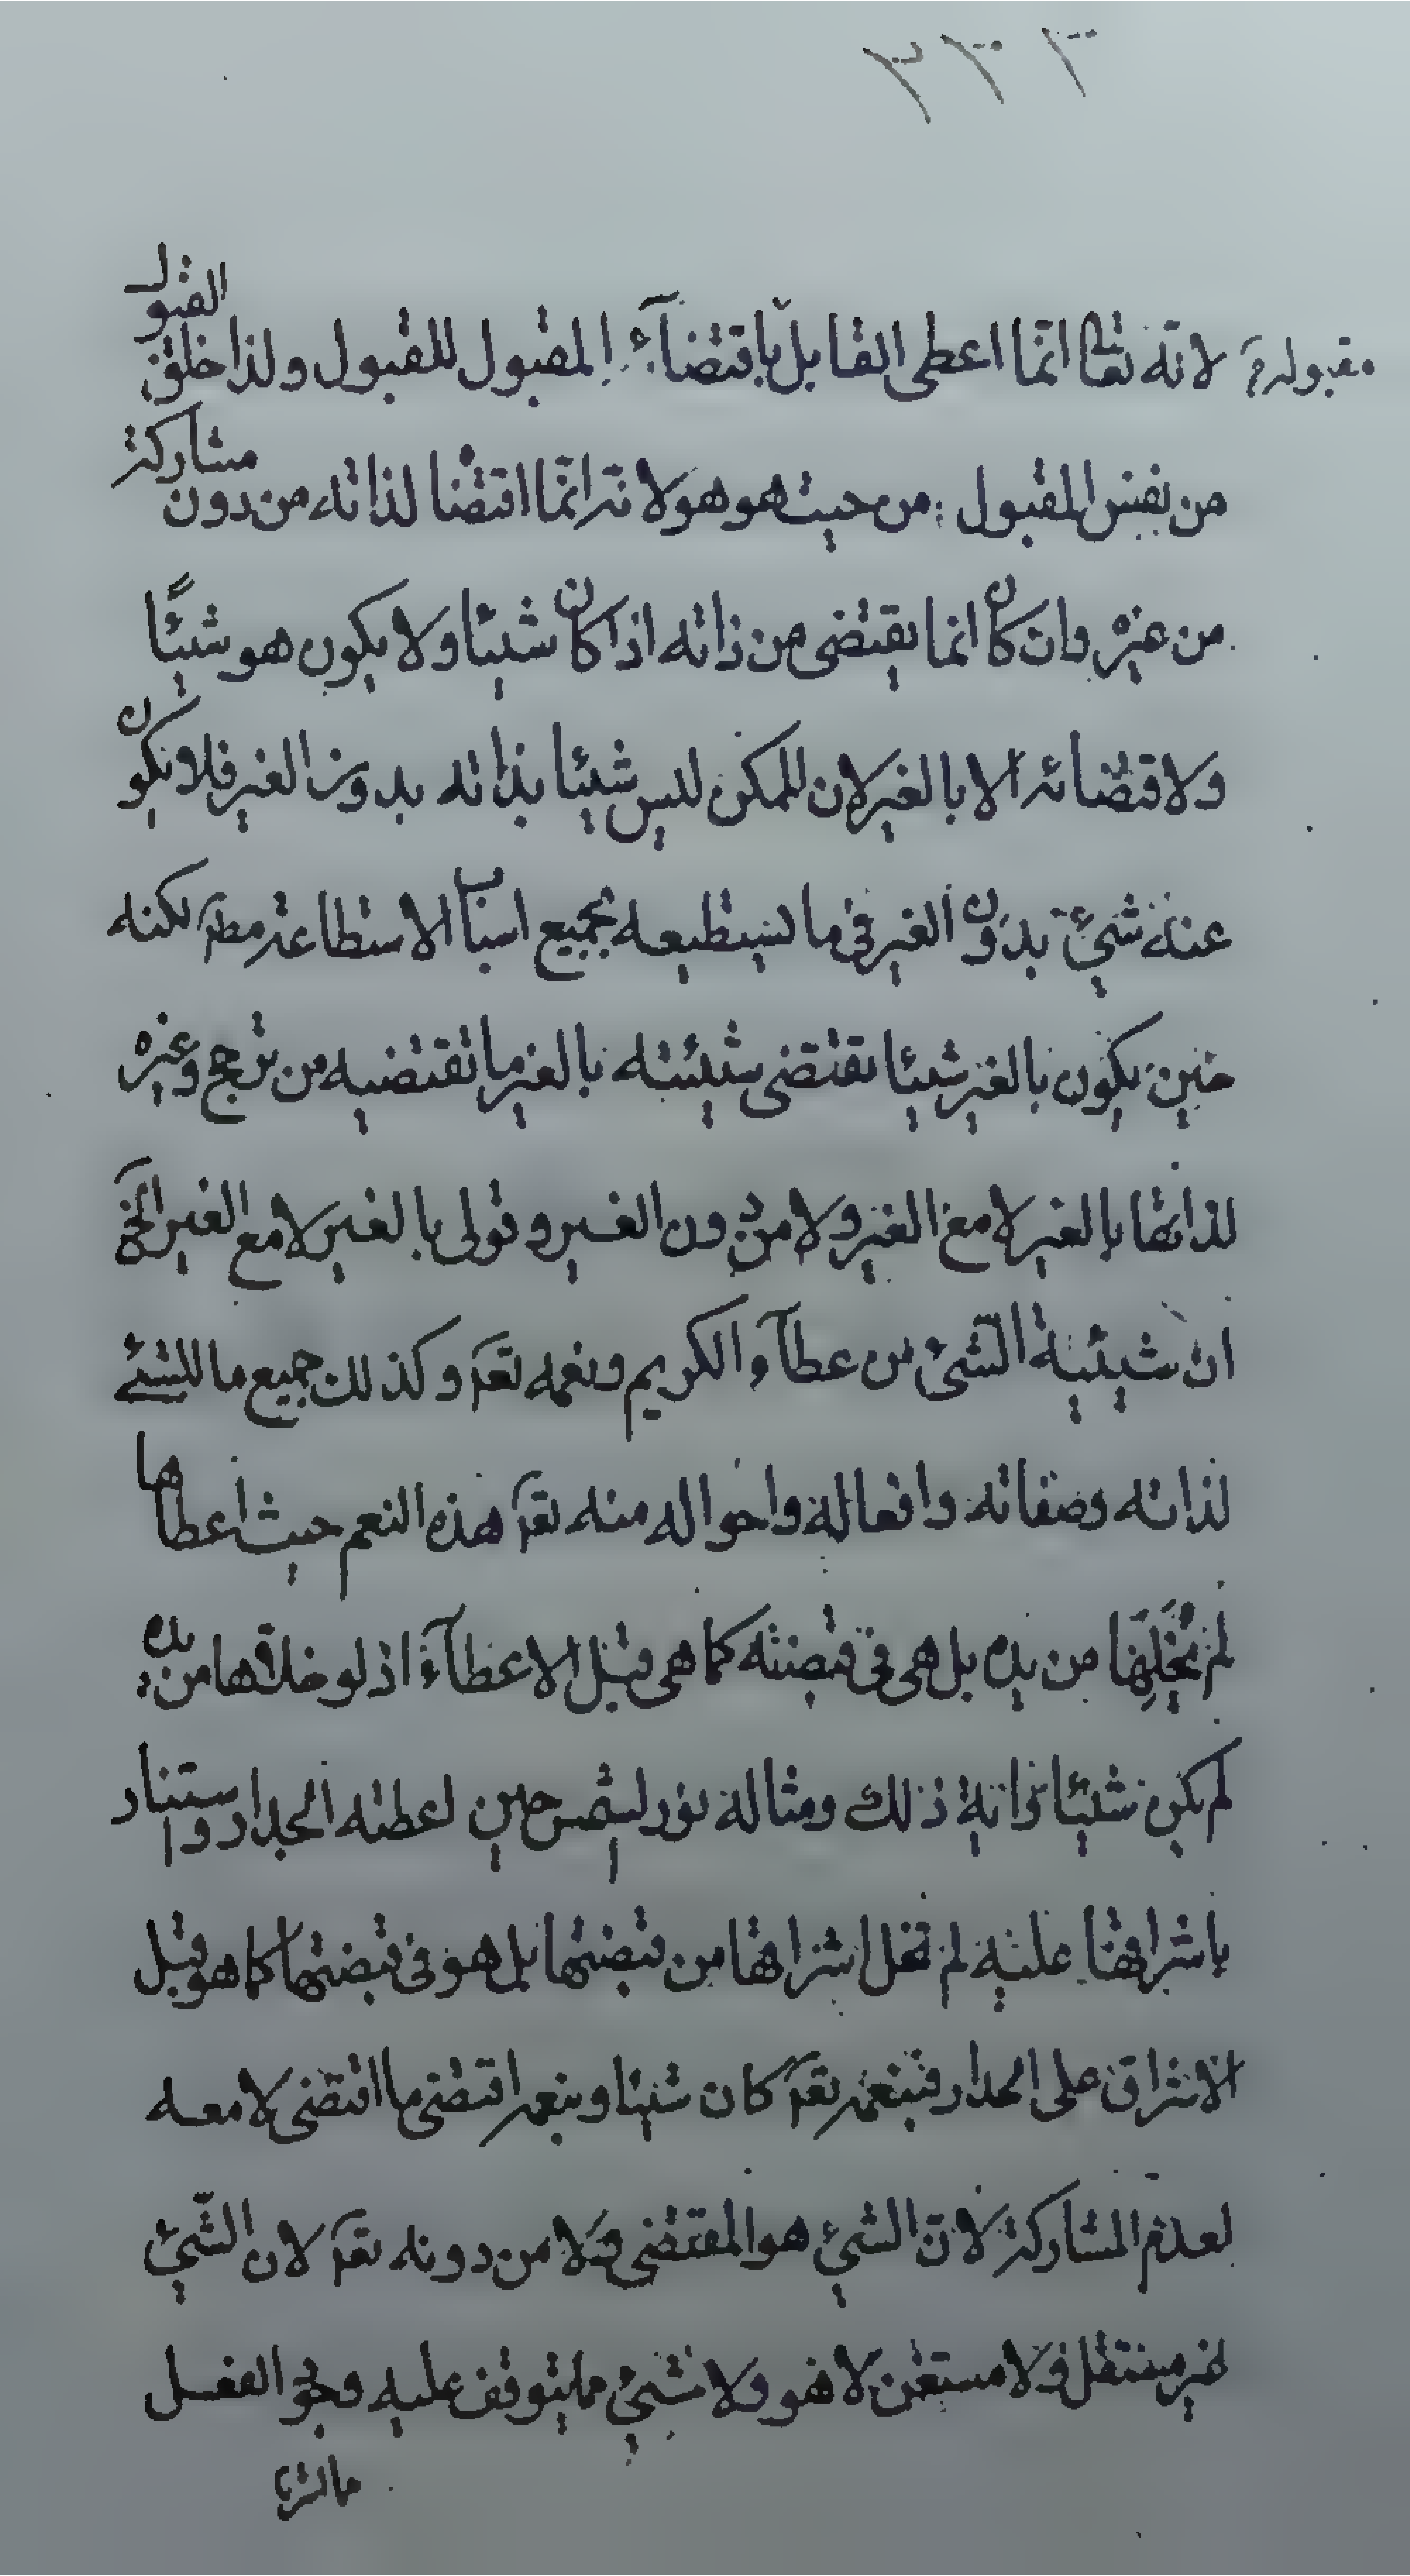 ٣٣٣
مقبوله م
لانه تعالى انّما اعطى القابل باقتضآء المقبول للمقبول ولذا خلق القبول
من نفس المقبول من حيث هو هو لانه انّما اقتضا لذاته من دون مشاركة
من غيره وان كان انما يقتضى من ذاته اذا كان شيئا ولا يكون هو شيئًا
ولا قتضائه الا بالغير لان الممكن ليس شيئا بذاته بدون الغير فلا تكون
عنده شيئ بدون الغير فى ما يستطيعه بجميع اسباب الاستطاعة مطم لكنه
حين يكون بالغير شيئا تقتضى شيئيته بالغير ما تقتضيه من ترجح وغيره
لذاتها بالغير لا مع الغير ولا من دون الغير وقولى بالغير لا مع الغير
ان شيئية الشئ من عطآء الكريم ونعمه تعم وكذلك جميع ما للشئ
لذاته وصفاته وافعاله واحواله منه تعم هذه النعم حيث اعطاها
لم يُخَلِّها من يده بل هى فى قبضته كما هى قبل الاعطآء اذ لو خلاها من يده
لم يكن شيئا ذلك ومثاله نور الشمس حين اعطته الجدار واستنار
باشراقها عليه لم تخل اشراقها من قبضتها بل هو فى قبضتها كما هو قبل
الاشراق على الجدار فبنعمه تعم كان شيئا وبنعمه اقتضى ما اقتضى لا معه
لعدم المشاركة لانّ الشيئ هو المقتضى ولا من دونه تعم لان الشّيئ
غير مستقل ولا مستغن لا هو ولا شيئ مما يتوقف عليه ونحو الفعل